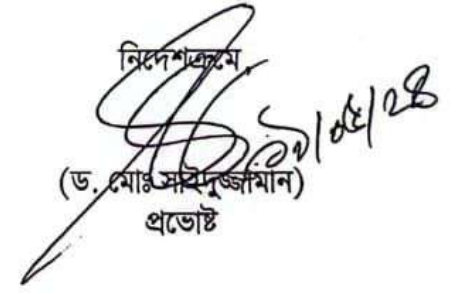 নির্দেশক্রমে
(ড. মোঃ সাইদুজ্জামান)
প্রভোষ্ট